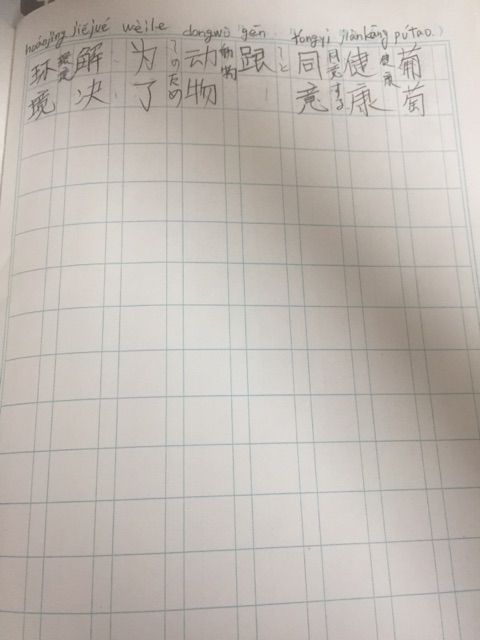 huáojìng jiějué wèile dongwù gēn tongyi jiànkāng pútao
环境
解决
为了
~のため
动物
動物
跟
~と
同意
同意する
健康
健康
葡萄